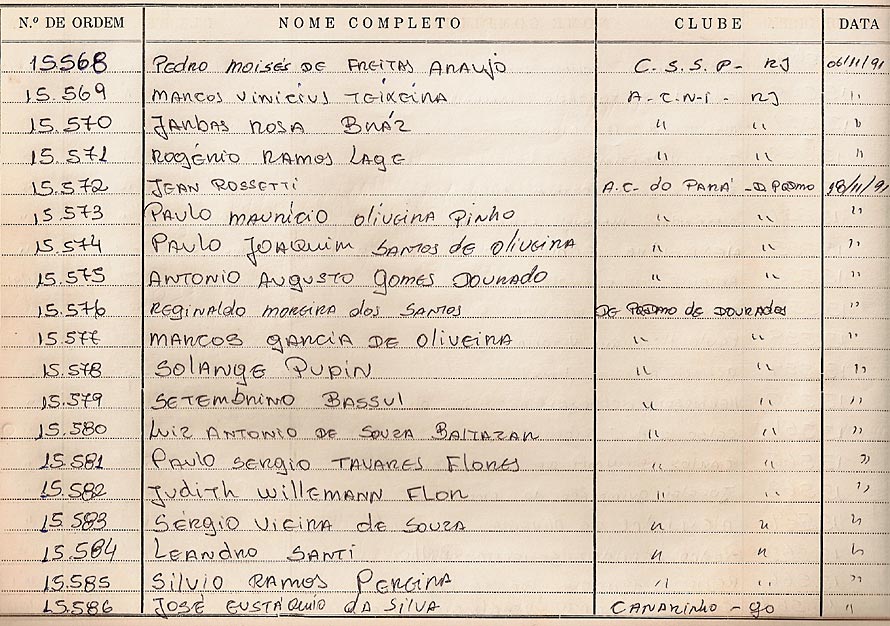 N.º DE ORDEM NOME COMPLETO CLUBE DATA
15568 PEDRO MOISÉS DE FREITAS ARAUJO C.S.S.P- RJ 06/11/91
15.569 MARCOS VINICIUS TEIXEIRA A-C.N-I - RJ "
15.570 JARBAS ROSA BRÁZ " " "
15.571 ROGÉRIO RAMOS LAGE " " "
15.572 JEAN ROSSETTI A.C. do PARÁ 18/11/91
15.573 PAULO MAURÍCIO OLIVEIRA PINHO " " "
15.574 PAULO JOAQUIM SANTOS DE OLIVEIRA " " "
15.575 ANTONIO AUGUSTO GOMES DOURADO " " "
15.576 REGINALDO MOREIRA dos SANTOS DE de DOURADOS "
15.577 MARCOS GARCIA DE OLIVEIRA " " "
15.578 SOLANGE PUPIN " " "
15.579 SETEMBRINO BASSUL " " "
15.580 LUIZ ANTONIO DE SOUZA BALTAZAR " " "
15.581 PAULO SERGIO TAVARES FLORES " " "
15.582 JUDITH WILLEMANN FLOR " " "
15.583 SÉRGIO VIEIRA de SOUZA " " "
15.584 LEANDRO SANTI " " "
15.585 SILVIO RAMOS PEREIRA " " "
15.586 JOSÉ EUSTÁQUIO DA SILVA CANARINHO - GO "